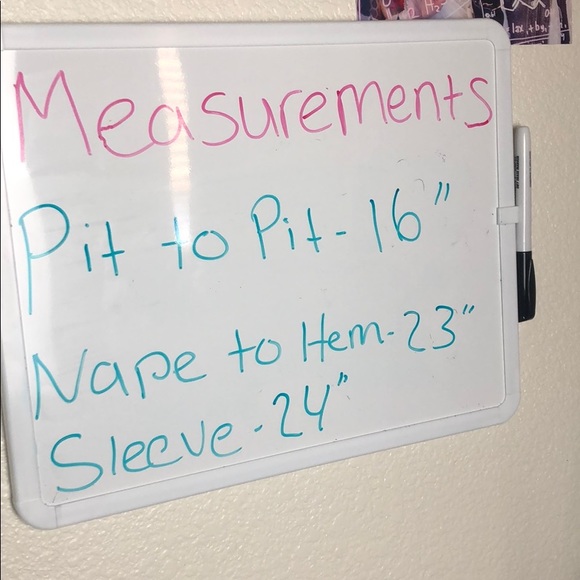 Measurements
Pit to Pit - 16"
Nape to Hem - 23"
Sleeve - 24"